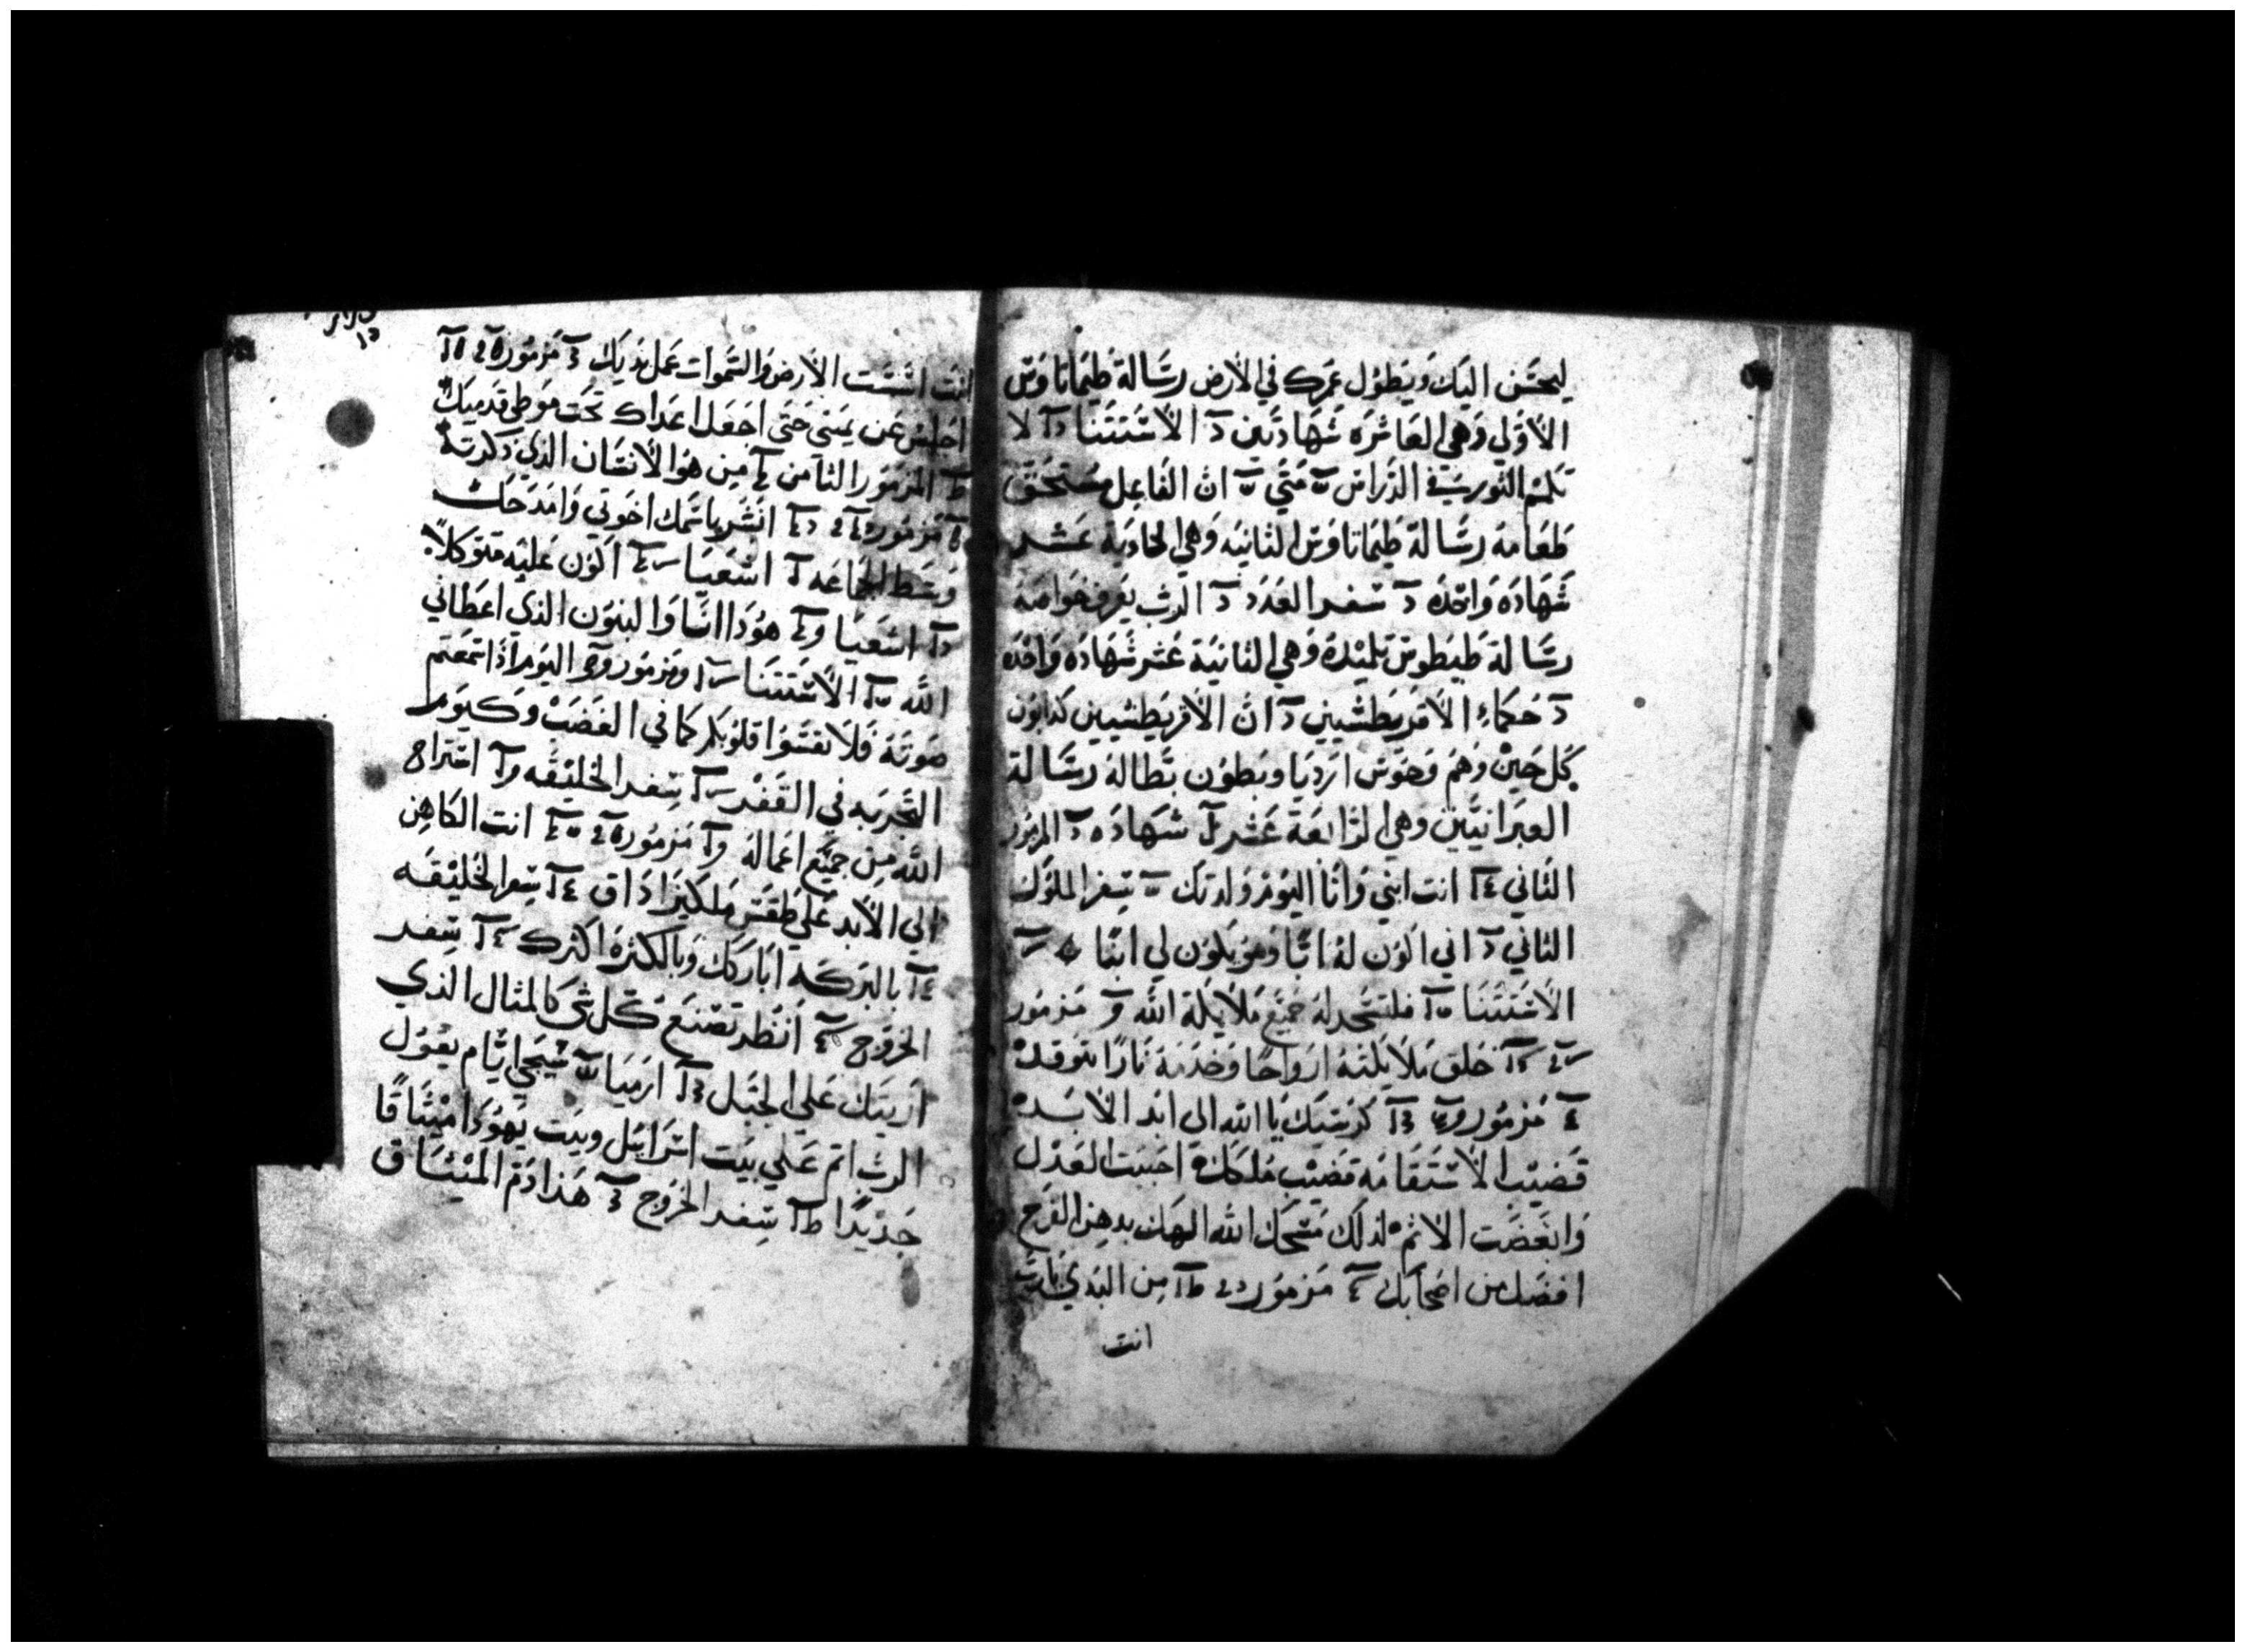 ليحسن اليك ويطول عمرك في الارض رسالة طيماتاوس
الاولي وهي العاشره شهادتين الاستتنا لا
تلثم الثور في الدراس متي ان الفاعل مستحق
طعامه رسالة طيماتاوس الثانيه وهي الحادية عشر
شهادة واحده سفر العدد الرب يعرف خواصه
رسالة طيطوس تلميذه وهي الثانية عشر شهاده واحده
حكماء الاقريطشيين ان الاقريطشيين كذابون
كل حين وهم وحوش ارديا وبطون بطالة رسالة
العبرانيين وهي الرابعة عشر شهاده المزمور
الثاني انت ابني وانا اليوم ولدتك سفر الملوك
الثاني اني اكون له ابا وهو يكون لي ابنا
الاستتنا فلتسجد له جميع ملايكة الله مزمور
خلق ملايكته ارواحا وخدمه نارا تتوقد
مزمور كرسيك يا الله الي ابد الابد
قضيب الاستقامه قضيب ملكك احببت العدل
وابغضت الاثم لذلك مسحك الله الهك بدهن الفرح
افضل من اصحابك مزمور من البدي يارب
انت
انت اسست الارض والسموات عمل يديك مزمور
اجلس عن يميني حتي اجعل اعداك تحت موطي قدميك
المزمور الثامن من هو الانسان الذي ذكرته
مزمور انشر باسمك اخوتي وامدحك
وسط الجماعه اشعيا اكون عليه متوكلا
اشعيا هودا انا والبنون الذي اعطاني
الله الاستتنا ومزمور اليوم اذا سمعتم
صوته فلا تقسوا قلوبكم كما في الغضب وكيوم
التجربه في القفر سفر الخليقه استراح
الله من جميع اعماله مزمور انت الكاهن
الي الابد علي طقس ملكيزاداق سفر الخليقه
بالبركه اباركك وبالكثره اكثرك سفر
الخروج انظر تصنع كل شي كالمثال الذي
اريتك علي الجبل ارميا سيجي ايام يقول
الرب اتم علي بيت اسرايل وبيت يهودا ميثاقا
جديدا سفر الخروج هذا دم الميثاق